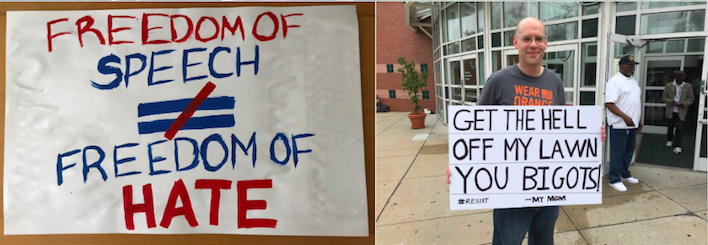 FREEDOM OF
SPEECH
≠
FREEDOM OF
HATE
WEAR
ORANGE
GET THE HELL
OFF MY LAWN
YOU BIGOTS!
#RESIST —MY MOM